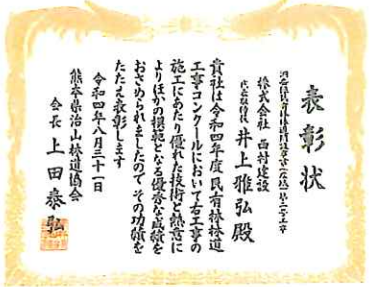 表彰状
株式会社 西村建設
代表取締役 井上雅弘 殿
貴社は令和四年度民有林林道
工事コンクールにおいて右工事の
施工にあたり優れた技術と熱意に
よりほかの模範となる優秀な成績を
おさめられましたので その功績を
たたえ表彰します
令和四年八月三十一日
熊本県治山林道協会
会長 上田泰弘